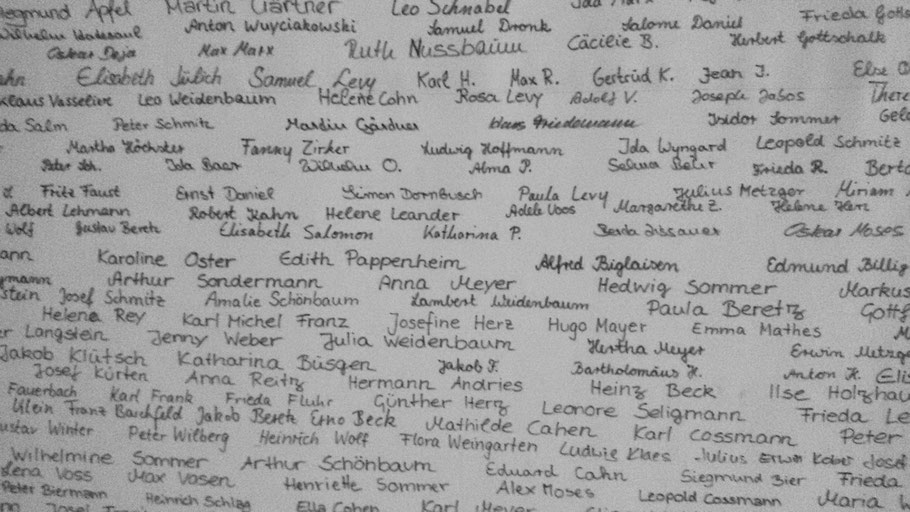 Siegmund Apfel Martin Gärtner Leo Schnabel
Anton Wuyciakowski Samuel Dronk Salome Daniel Frieda Gotts
Oskar Deja Max Marx Ruth Nussbaum Cäcilie B. Herbert Gottschalk
ahn Elisabeth Jülich Samuel Levy Karl H. Max R. Gertrud K. Jean J. Else
Klaus Vasseline Leo Weidenbaum Helene Cohn Rosa Levy Adolf V. Joseph Jasos There
da Salm Peter Schmitz Martin Gärdner Klaus Friedemann Isidor Sommer Gel
Martha Höchster Fanny Zirker Ludwig Hoffmann Ida Wyngard Leopold Schmitz
Peter Joh. Ida Baer Wilhelm O. Alma P. Selma Behr Frieda R. Berta
Fritz Faust Ernst Daniel Simon Dornbusch Paula Levy Julius Metzger Miriam
Albert Lehmann Robert Kahn Helene Leander Adele Voos Margarethe Z. Helene Herz
Wolf Gustav Beretz Elisabeth Salomon Katharina P. Berta Jissauer Oskar Moses
ann Karoline Oster Edith Pappenheim Alfred Biglaisen Edmund Billig
gmann Arthur Sondermann Anna Meyer Hedwig Sommer Markus
stein Josef Schmitz Amalie Schönbaum Lambert Weidenbaum Paula Beretz Gottf
Helena Rey Karl Michel Franz Josefine Herz Hugo Mayer Emma Mathes M
er Langstein Jenny Weber Julia Weidenbaum Hertha Meyer Erwin Metzge
Jakob Klütsch Katharina Büsgen Jakob F. Bartholomäus H. Anton K. Elis
Josef Kürten Anna Reitz Hermann Andries Heinz Beck Ilse Holzhau
Fauerbach Karl Frank Frieda Fluhr Günther Herz Leonore Seligmann Frieda Le
Ulein Franz Barchfeld Jakob Beretz Erno Beck Mathilde Cahen Karl Cossmann Peter
ustav Winter Peter Wilberg Heinrich Wolf Flora Weingarten Ludwig Klaes Julius Erwin Kober Josef
Wilhelmine Sommer Arthur Schönbaum Eduard Cahn Siegmund Bier Frieda
Lena Voss Max Vasen Henriette Sommer Alex Moses Leopold Cossmann Maria W
Peter Biermann Heinrich Schlag Ella Cohen Karl Meyer